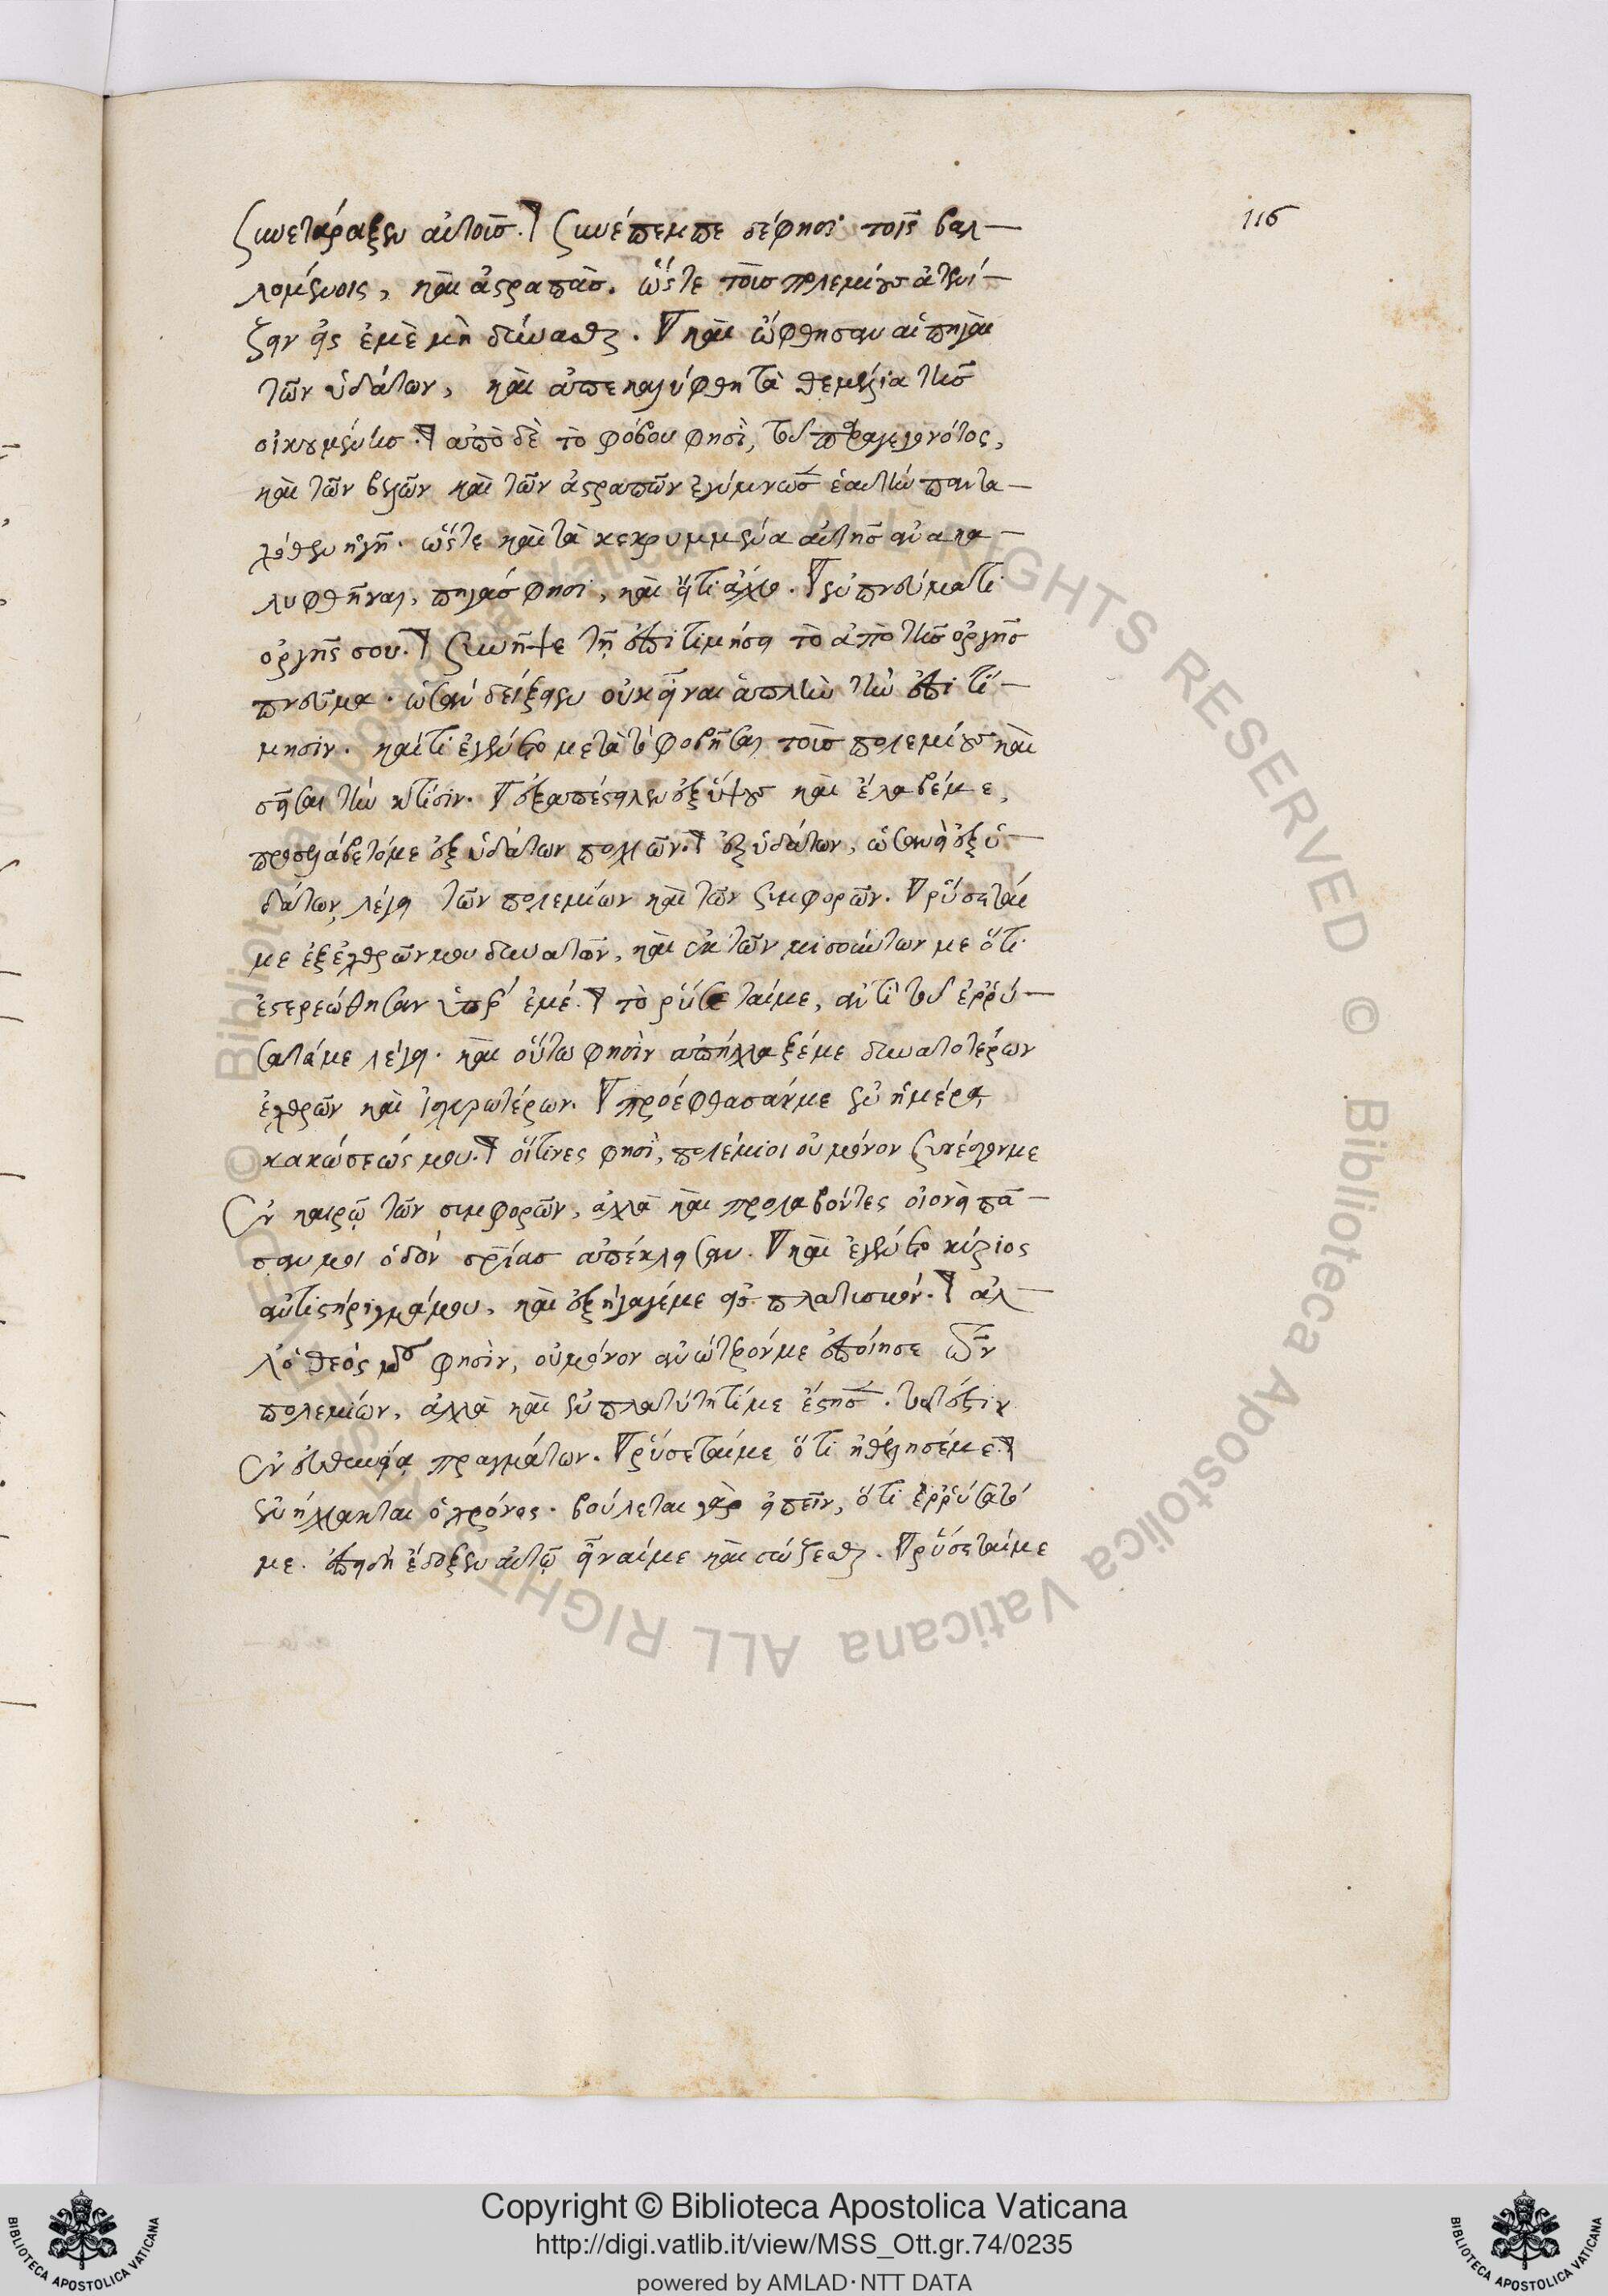 116
συνετάραξεν αὐτούς. συνέπεμπε δέ φησι τοῖς βαλ-
λομένοις, καὶ ἀστραπὰς. ὥστε τοὺς πολεμίους ἀτενί-
ζειν εἰς ἐμὲ μὴ δύνασθαι. καὶ ὤφθησαν αἱ πηγαὶ
τῶν ὑδάτων, καὶ ἀπεκαλύφθη τὰ θεμέλια τῆς
οἰκουμένης. ἀπὸ δὲ τὸ φόβου φησὶ, τοῦ παραγεγονότος,
καὶ τῶν βελῶν καὶ τῶν ἀστραπῶν ἐγύμνωσεν ἑαυτὴν παντα-
χόθεν ἡ γῆ. ὥστε καὶ τὰ κεκρυμμένα αὐτῆς ἀνακα-
λυφθῆναι, πηγάς φησι, καὶ εἴτι ἄλλο. ἐν πνεύματι
ὀργῆς σου. συνῆψε τῇ ἐπιτιμήσει τὸ ἀπὸ τῆς ὀργῆς
πνεῦμα. ὡσὰν δείξειεν οὐκ εἶναι ἁπλῆν τὴν ἐπιτί-
μησιν. καίτι ἐγένετο μετὰ τὸ φοβῆσαι τοὺς πολεμίους καὶ
σεῖσαι τὴν κτίσιν. ἐξαπέστειλεν ἐξ ὕψους καὶ ἔλαβέ με,
προσελάβετό με ἐξ ὑδάτων πολλῶν. ἐξ ὑδάτων, ὡσανεὶ ἐξ ὑ-
δάτων, λέγει τῶν πολεμίων καὶ τῶν συμφορῶν. ῥύσεταί
με ἐξ ἐχθρῶν μου δυνατῶν, καὶ ἐκ τῶν μισούντων με ὅτι
ἐστερεώθησαν ὑπὲρ ἐμέ. τὸ ῥύσεταί με, ἀντὶ τοῦ ἐρρύ-
σατό με λέγει. καὶ οὕτω φησὶν ἀπήλλαξέ με δυνατοτέρων
ἐχθρῶν καὶ ἰσχυροτέρων. προέφθασάν με ἐν ἡμέρᾳ
κακώσεώς μου. οἵτινες φησὶ, πολέμιοι οὐ μόνον συνέσχον με
ἐν καιρῷ τῶν συμφορῶν, ἀλλὰ καὶ προλαβόντες οἱονεὶ πᾶ-
σαν μοι ὁδὸν σωτηρίας ἀπέκλεισαν. καὶ ἐγένετο κύριος
ἀντιστήριγμά μου, καὶ ἐξήγαγέ με εἰς πλατυσμόν. ἀλ-
λ᾽ ὁ θεός μου φησὶν, οὐ μόνον ἀνώτερόν με ἐποίησε τῶν
πολεμίων, ἀλλὰ καὶ ἐν πλατύτητί με ἔστησεν. τουτέστιν
ἐν εὐθηνίᾳ πραγμάτων. ῥύσεταί με ὅτι ἠθέλησέ με.
ἐνήλλακται ὁ χρόνος. βούλεται γὰρ εἰπεῖν, ὅτι ἐρρύσατό
με. ἐπειδὴ ἔδοξεν αὐτῷ εἶναί με καὶ σώζεσθαι. ῥύσεταί με
Copyright © Biblioteca Apostolica Vaticana
http://digi.vatlib.it/view/MSS_Ott.gr.74/0235
powered by AMLAD·NTT DATA